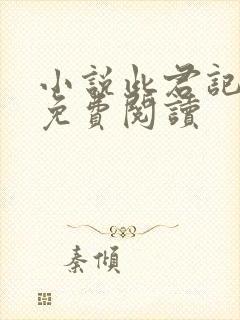 小說此君記
免費閱讀
秦傾